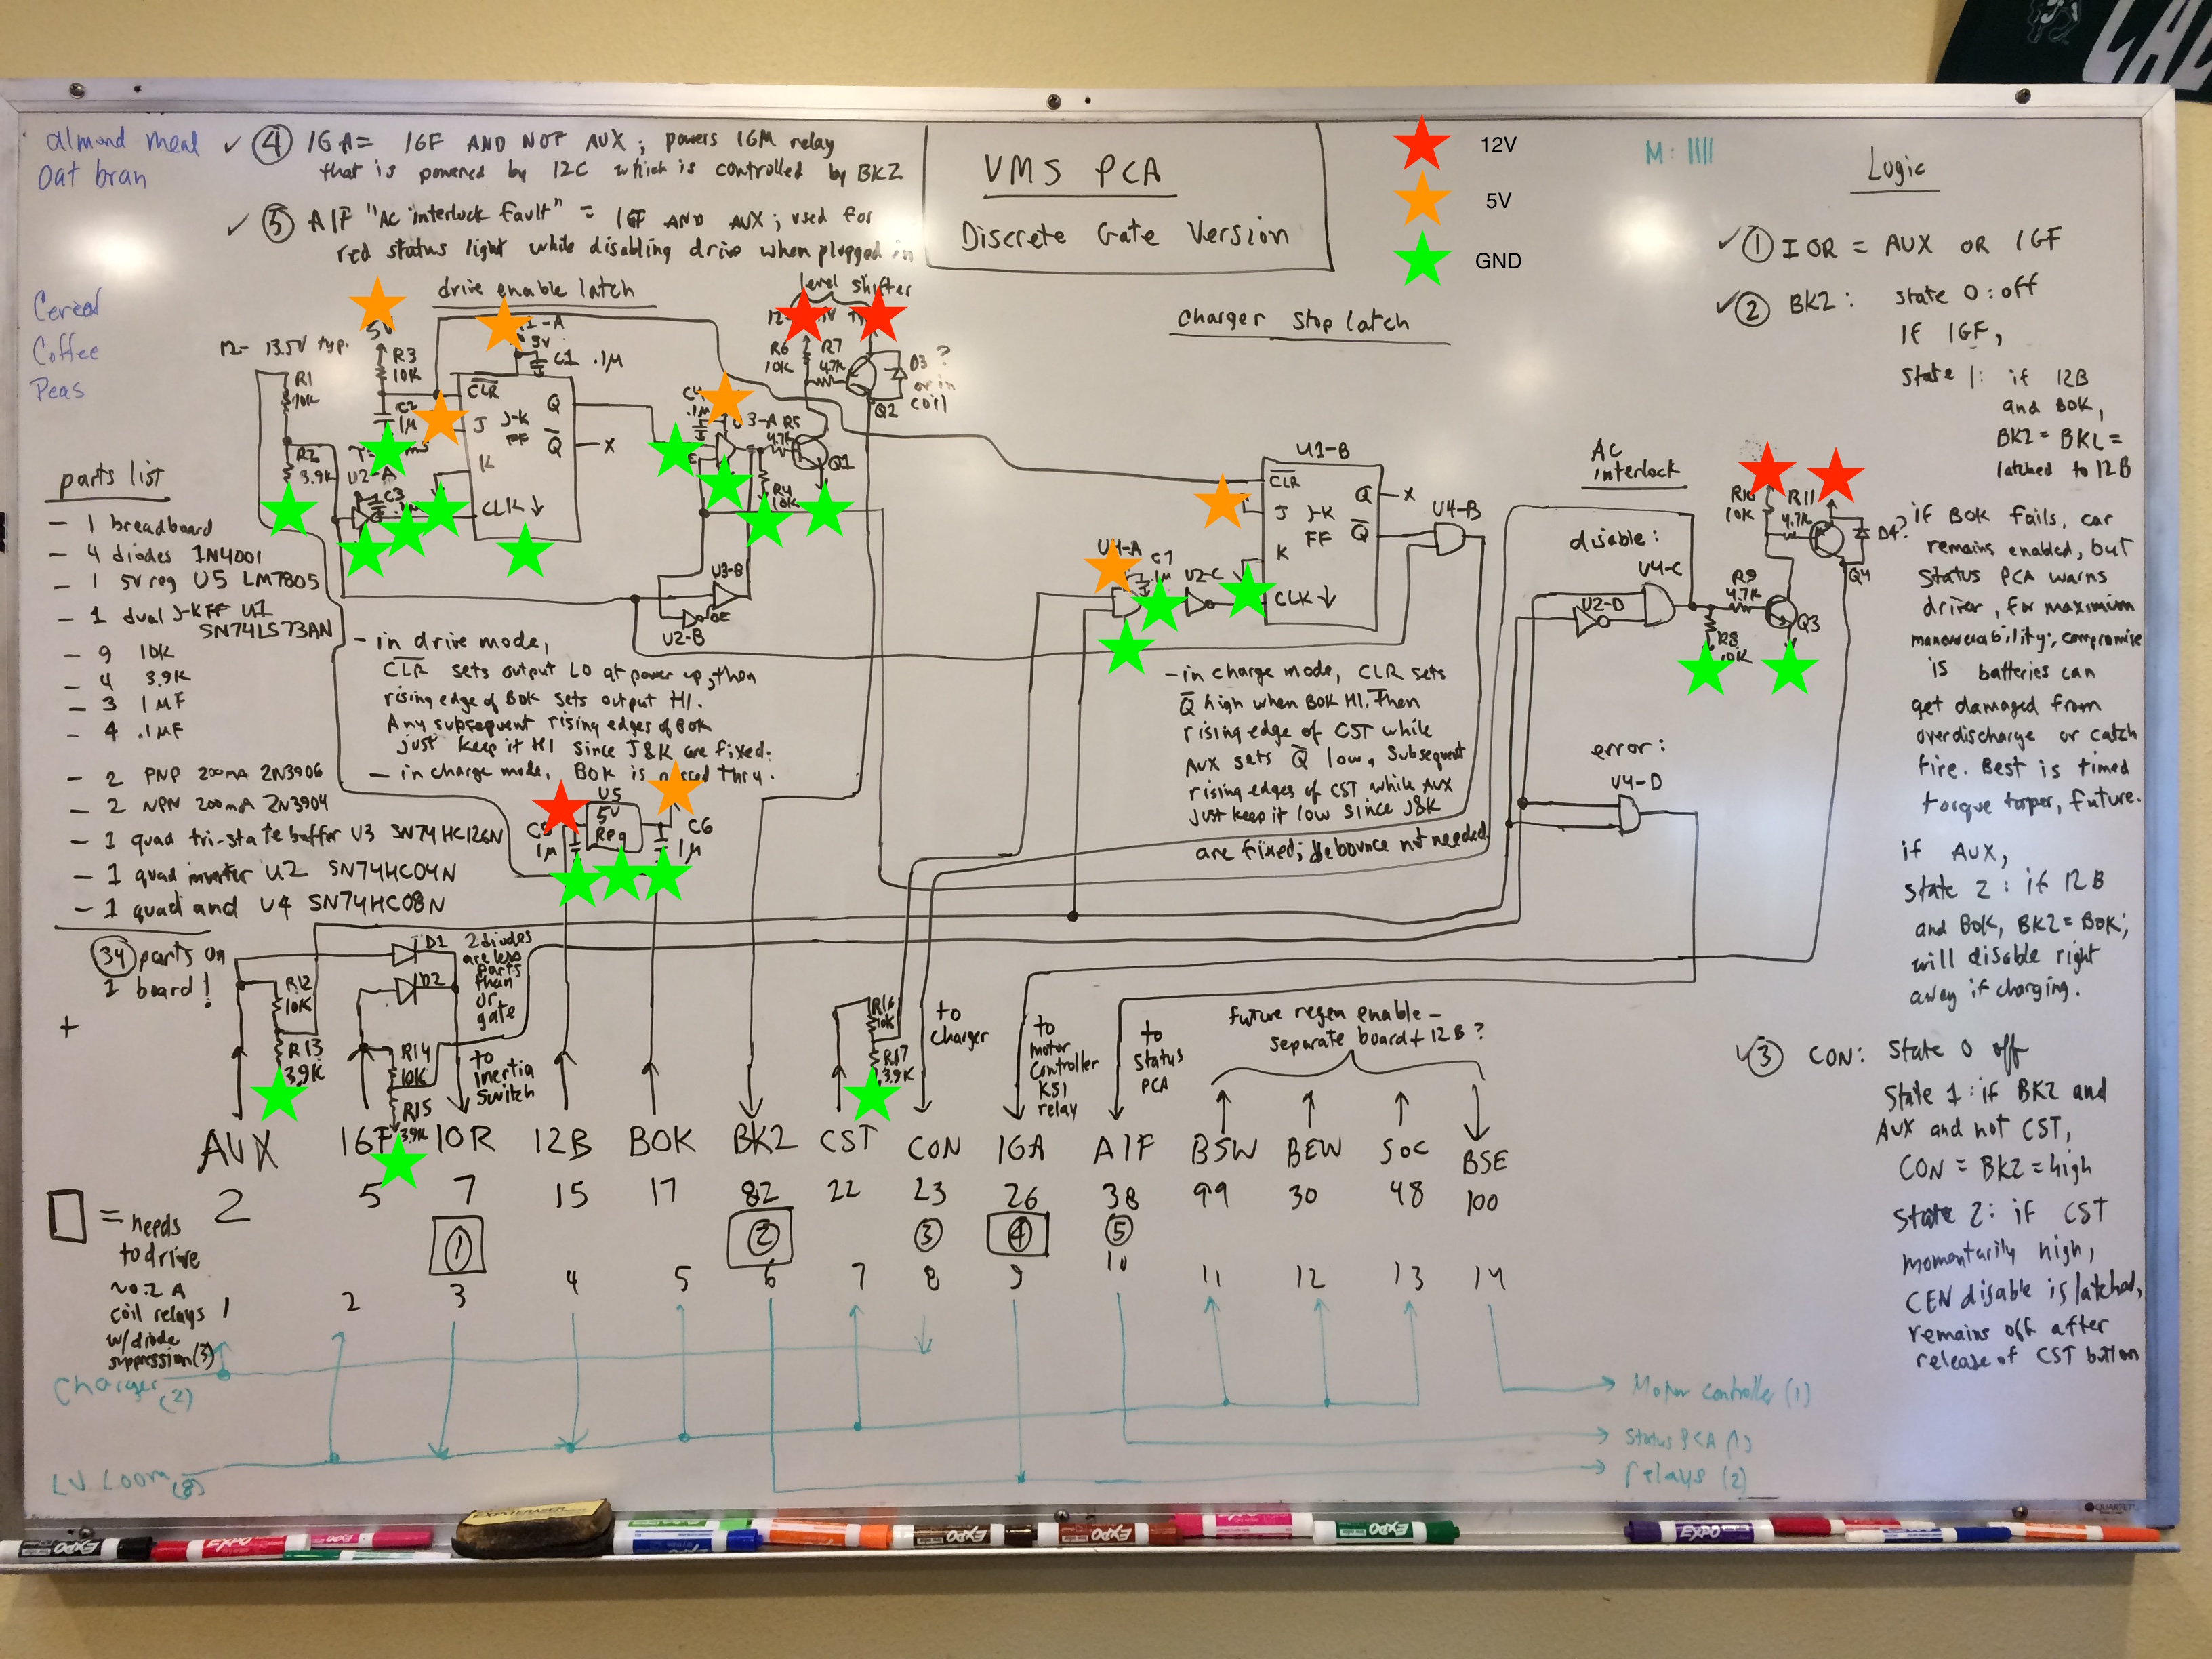 almond meal
oat bran
Cereal
Coffee
Peas
✓ ④ IGA = IGF AND NOT AUX; powers IGM relay
that is powered by 12C which is controlled by BK2
✓ ⑤ AIF "AC interlock fault" = IGF AND AUX; used for
red status light while disabling drive when plugged in
VMS PCA
Discrete Gate Version
12V
5V
GND
M: IIII
Logic
✓ ① IOR = AUX OR IGF
✓ ② BK2: state 0: off
If IGF,
state 1: if 12B
and BOK,
BK2 = BKL =
latched to 12B
if BOK fails, car
remains enabled, but
status PCA warns
driver, for maximum
maneuverability; compromise
is batteries can
get damaged from
overdischarge or catch
fire. Best is timed
torque taper, future.
if AUX,
state 2: if 12B
and BOK, BK2 = BOK;
will disable right
away if charging.
✓ ③ CON: state 0 off
state 1: if BK2 and
AUX and not CST,
CON = BK2 = high
state 2: if CST
momentarily high,
CEN disable is latched,
remains off after
release of CST button
drive enable latch
level shifter
12-13.5V typ.
R1
10K
R2
3.9K
5V
R3
10K
C2
1µ
U2-A
C3
5V
C1 .1µ
CLR
J
K
J-K
FF
Q
Q
X
CLK ↓
C4
.1µ
3-A
R5
4.7K
R4
10K
Q1
R6
10K
R7
4.7K
Q2
D3?
or in
coil
U3-B
OE
U2-B
Charger Stop latch
U1-B
CLR
J
K
J-K
FF
Q
Q
X
CLK ↓
C7
.1µ
U2-C
U4-B
AC
interlock
disable:
U4-C
U2-D
R9
4.7K
R8
10K
Q3
R10
10K
R11
4.7K
D4?
Q4
error:
U4-D
parts list
- 1 breadboard
- 4 diodes 1N4001
- 1 5v reg U5 LM7805
- 1 dual J-K FF U1
SN74LS73AN
- 9 10K
- 4 3.9K
- 3 1µF
- 4 .1µF
- 2 PNP 200mA 2N3906
- 2 NPN 200mA 2N3904
- 1 quad tri-state buffer U3 SN74HC126N
- 1 quad inverter U2 SN74HC04N
- 1 quad and U4 SN74HC08N
34 parts on
1 board!
+
- in drive mode,
CLR sets output LO at power up, then
rising edge of BOK sets output HI.
Any subsequent rising edges of BOK
just keep it HI since J&K are fixed.
- in charge mode, BOK is passed thru.
- in charge mode, CLR sets
Q high when BOK HI. Then
rising edge of CST while
AUX sets Q low. Subsequent
rising edges of CST while AUX
just keep it low since J&K
are fixed; debounce not needed.
U5
5V
Reg
C5
1µ
C6
1µ
D1
D2
2 diodes
are less
parts
than
or
gate
R12
10K
R13
3.9K
R14
10K
R15
3.9K
to
inertia
switch
R16
10K
R17
3.9K
to
charger
to
motor
controller
KSI
relay
to
status
PCA
future regen enable -
separate board + 12B?
AUX IGF IOR 12B BOK BK2 CST CON IGA AIF BSW BEW SOC BSE
2 5 7 15 17 82 22 23 26 38 99 30 48 100
① ② ③ ④ ⑤
1 2 3 4 5 6 7 8 9 10 11 12 13 14
= needs
to drive
~0.2 A
coil relays
w/diode
suppression (3)
Charger (2)
LV Loom (8)
Motor controller (1)
Status PCA (1)
relays (2)
QUARTET
EXPO
EXPO
EXPO
EXPO
EXPO
EXPO
EXPO